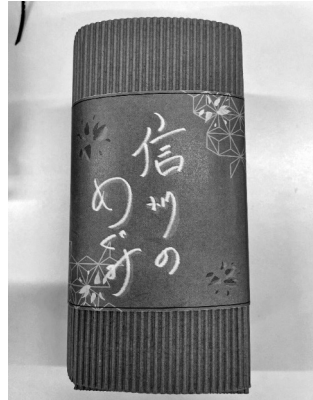 信州の
めぐみ